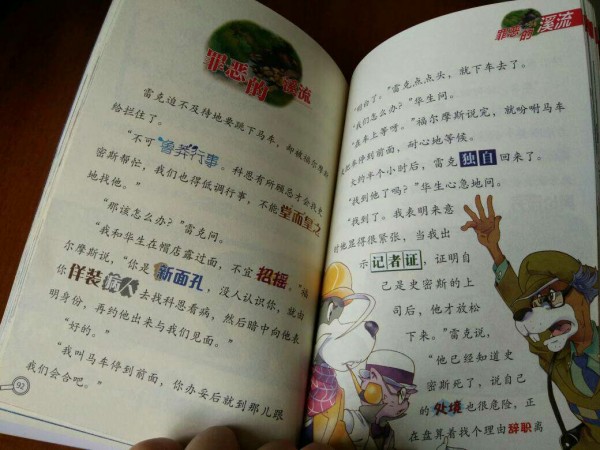 罪恶的溪流
雷克迫不及待地要跳下马车，却被福尔摩斯
给拦住了。
“不可鲁莽行事。科恩有所顾忌才会找史
密斯帮忙，我们也得低调行事，不能堂而皇之
地找他。”
“那该怎么办？”雷克问。
“我和华生在帽店露过面，不宜招摇。”福
尔摩斯说，“你是新面孔，没人认识你，就由
你佯装病人去找科恩看病，然后暗中向他表
明身份，再约他出来与我们见面。”
“好的。”
“我叫马车停到前面，你办妥后就到那儿跟
我们会合吧。”
92
罪恶的溪流
“明白了。”雷克点点头，就下车去了。
“我们怎么办？”华生问。
“在车上等嘈。”福尔摩斯说完，就吩咐马车
夫把车停到前面，耐心地等候。
大约半个小时后，雷克独自回来了。
“找到他了吗？”华生心急地问。
“找到了。我表明来意
时他显得很紧张，当我出
示记者证，证明自
己是史密斯的上
司后，他才放松
下来。”雷克说，
“他已经知道史
密斯死了，说自己
的处境也很危险，正
在盘算着找个理由辞职离